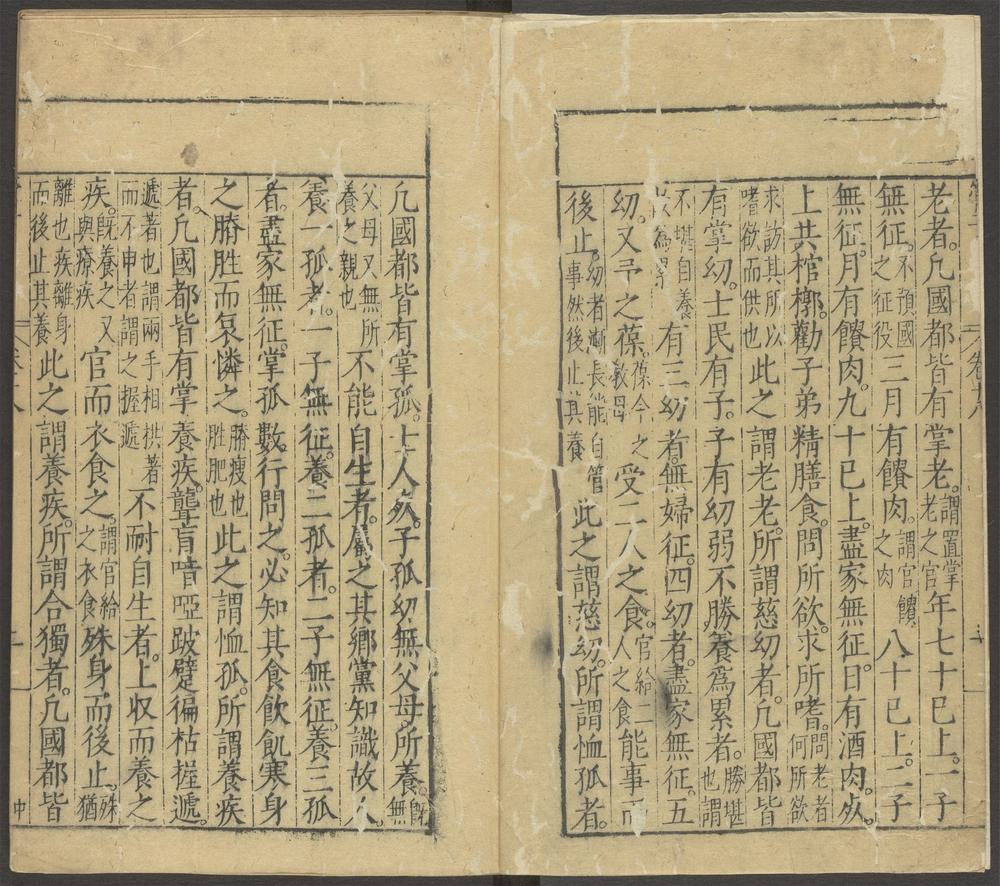 卷十八
老者。凡國都皆有掌老。謂置掌老之官年七十已上。一子
無征。不預國之征役三月有饋肉。謂官饋之肉八十已上。二子
無征。月有饋肉。九十已上。盡家無征。日有酒肉。死。
上共棺槨。勸子弟精膳食。問所欲。求所嗜。問老者何所欲
求訪其所以嗜欲而供也此之謂老老。所謂慈幼者。凡國都皆
有掌幼。士民有子。子有幼弱不勝養爲累者。勝堪也謂
不堪自養以爲累有三幼者。無婦征。四幼者。盡家無征。五
幼。又予之葆。葆今之教母受二人之食。官給二人之食能事而
後止。幼者漸長能自管事然後止其養此之謂慈幼。所謂恤孤者。
凡國都皆有掌孤。士人死。子孤幼無父母所養。既無
父母又無所養之親也不能自生者。屬之其鄉黨知識故人。
養一孤者。一子無征。養二孤者。二子無征。養三孤
者。盡家無征。掌孤數行問之。必知其食飲飢寒身
之膌胜而哀憐之。膌瘦也胜肥也此之謂恤孤。所謂養疾
者。凡國都皆有掌養疾。聾盲喑啞跛躄偏枯握遞。
遞著也謂兩手相拱著而不申者謂之握遞不耐自生者。上收而養之
疾。既養之又與療疾官而衣食之。謂官給之衣食殊身而後止。殊猶
離也疾離身而後止其養此之謂養疾。所謂合獨者。凡國都皆
中